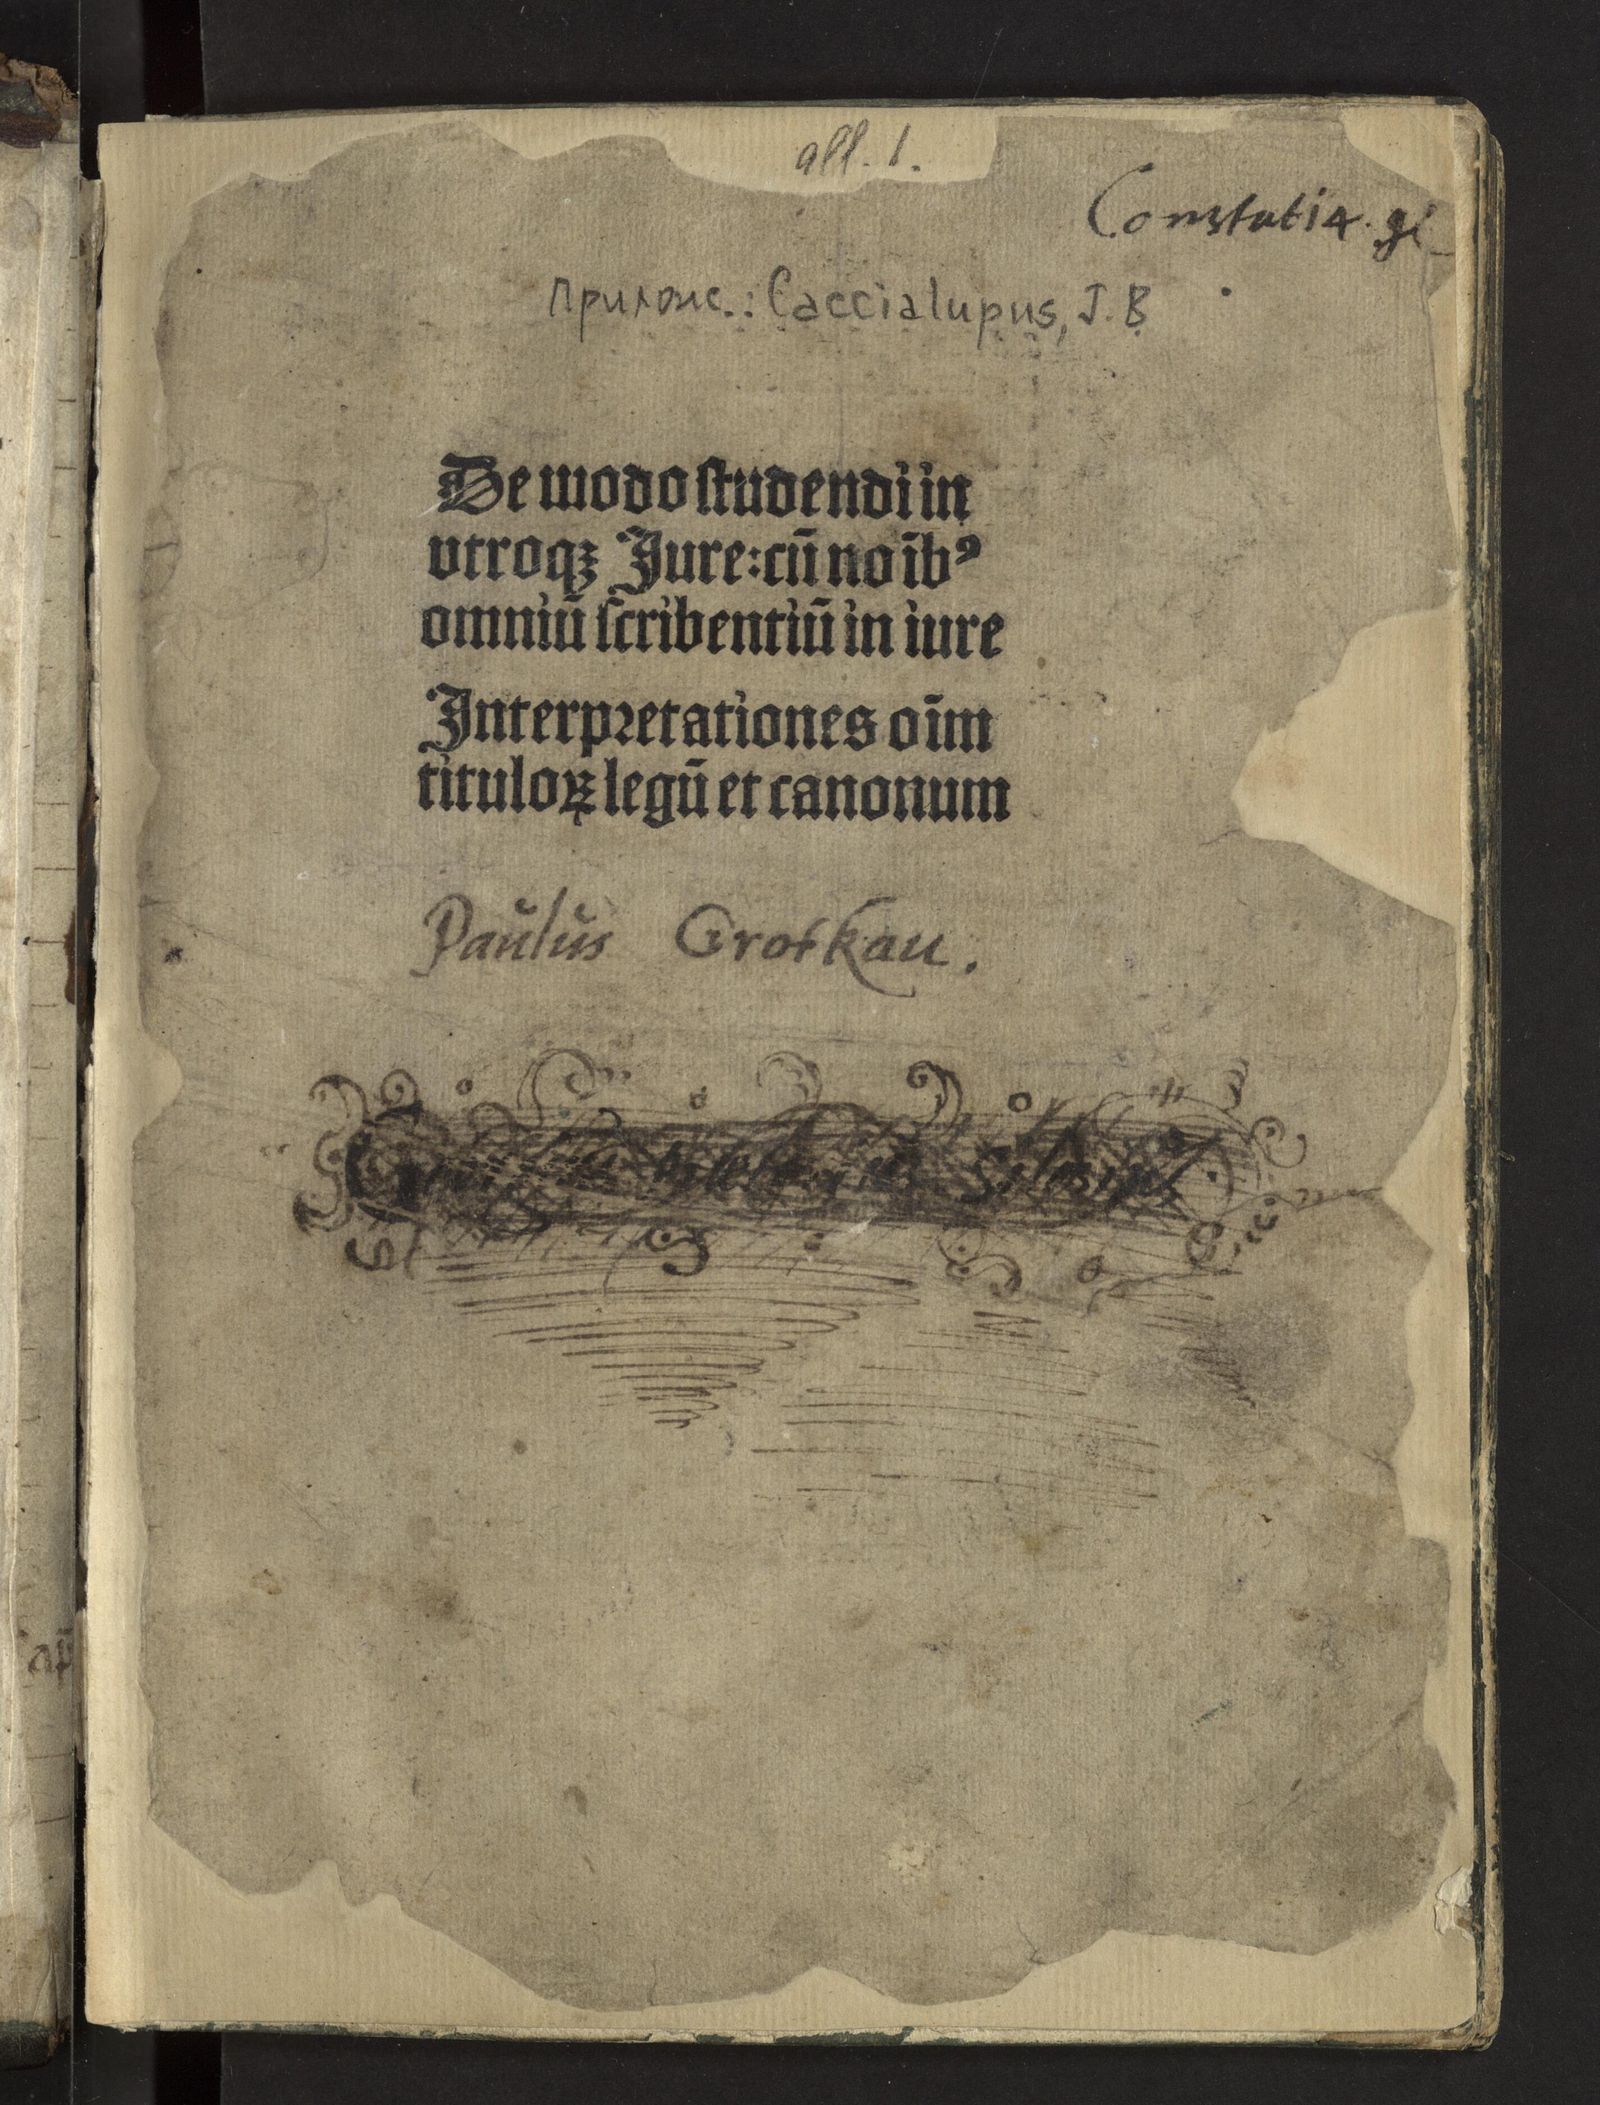 all. 1.
Constatia.
Прилож.: Caccialupus, J. B
De modo studendi in
vtroqꝫ Jure: cū noīb⁹
omniū scribentiū in iure
Interpretationes oīm
tituloꝝ legū et canonum
Paŭlŭs Grotkau.